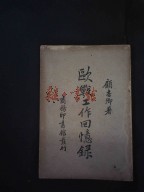 顧杏卿著
歐戰工作回憶錄
商務印書館發行